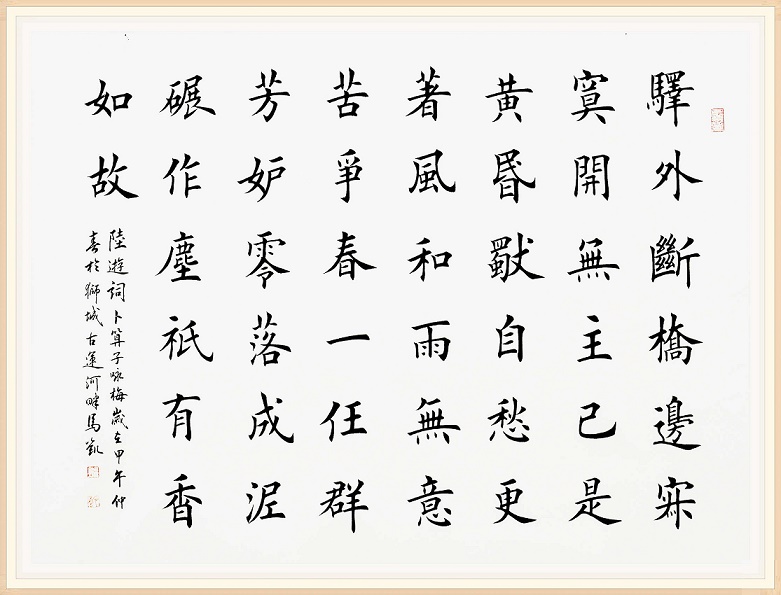 驛外斷橋邊寂
寞開無主已是
黃昬獨自愁更
著風和雨無意
苦爭春一任群
芳妒零落成泥
碾作塵祇有香
如故
陸遊詞卜算子咏梅歲在甲午仲
春於獅城古運河畔馬凱